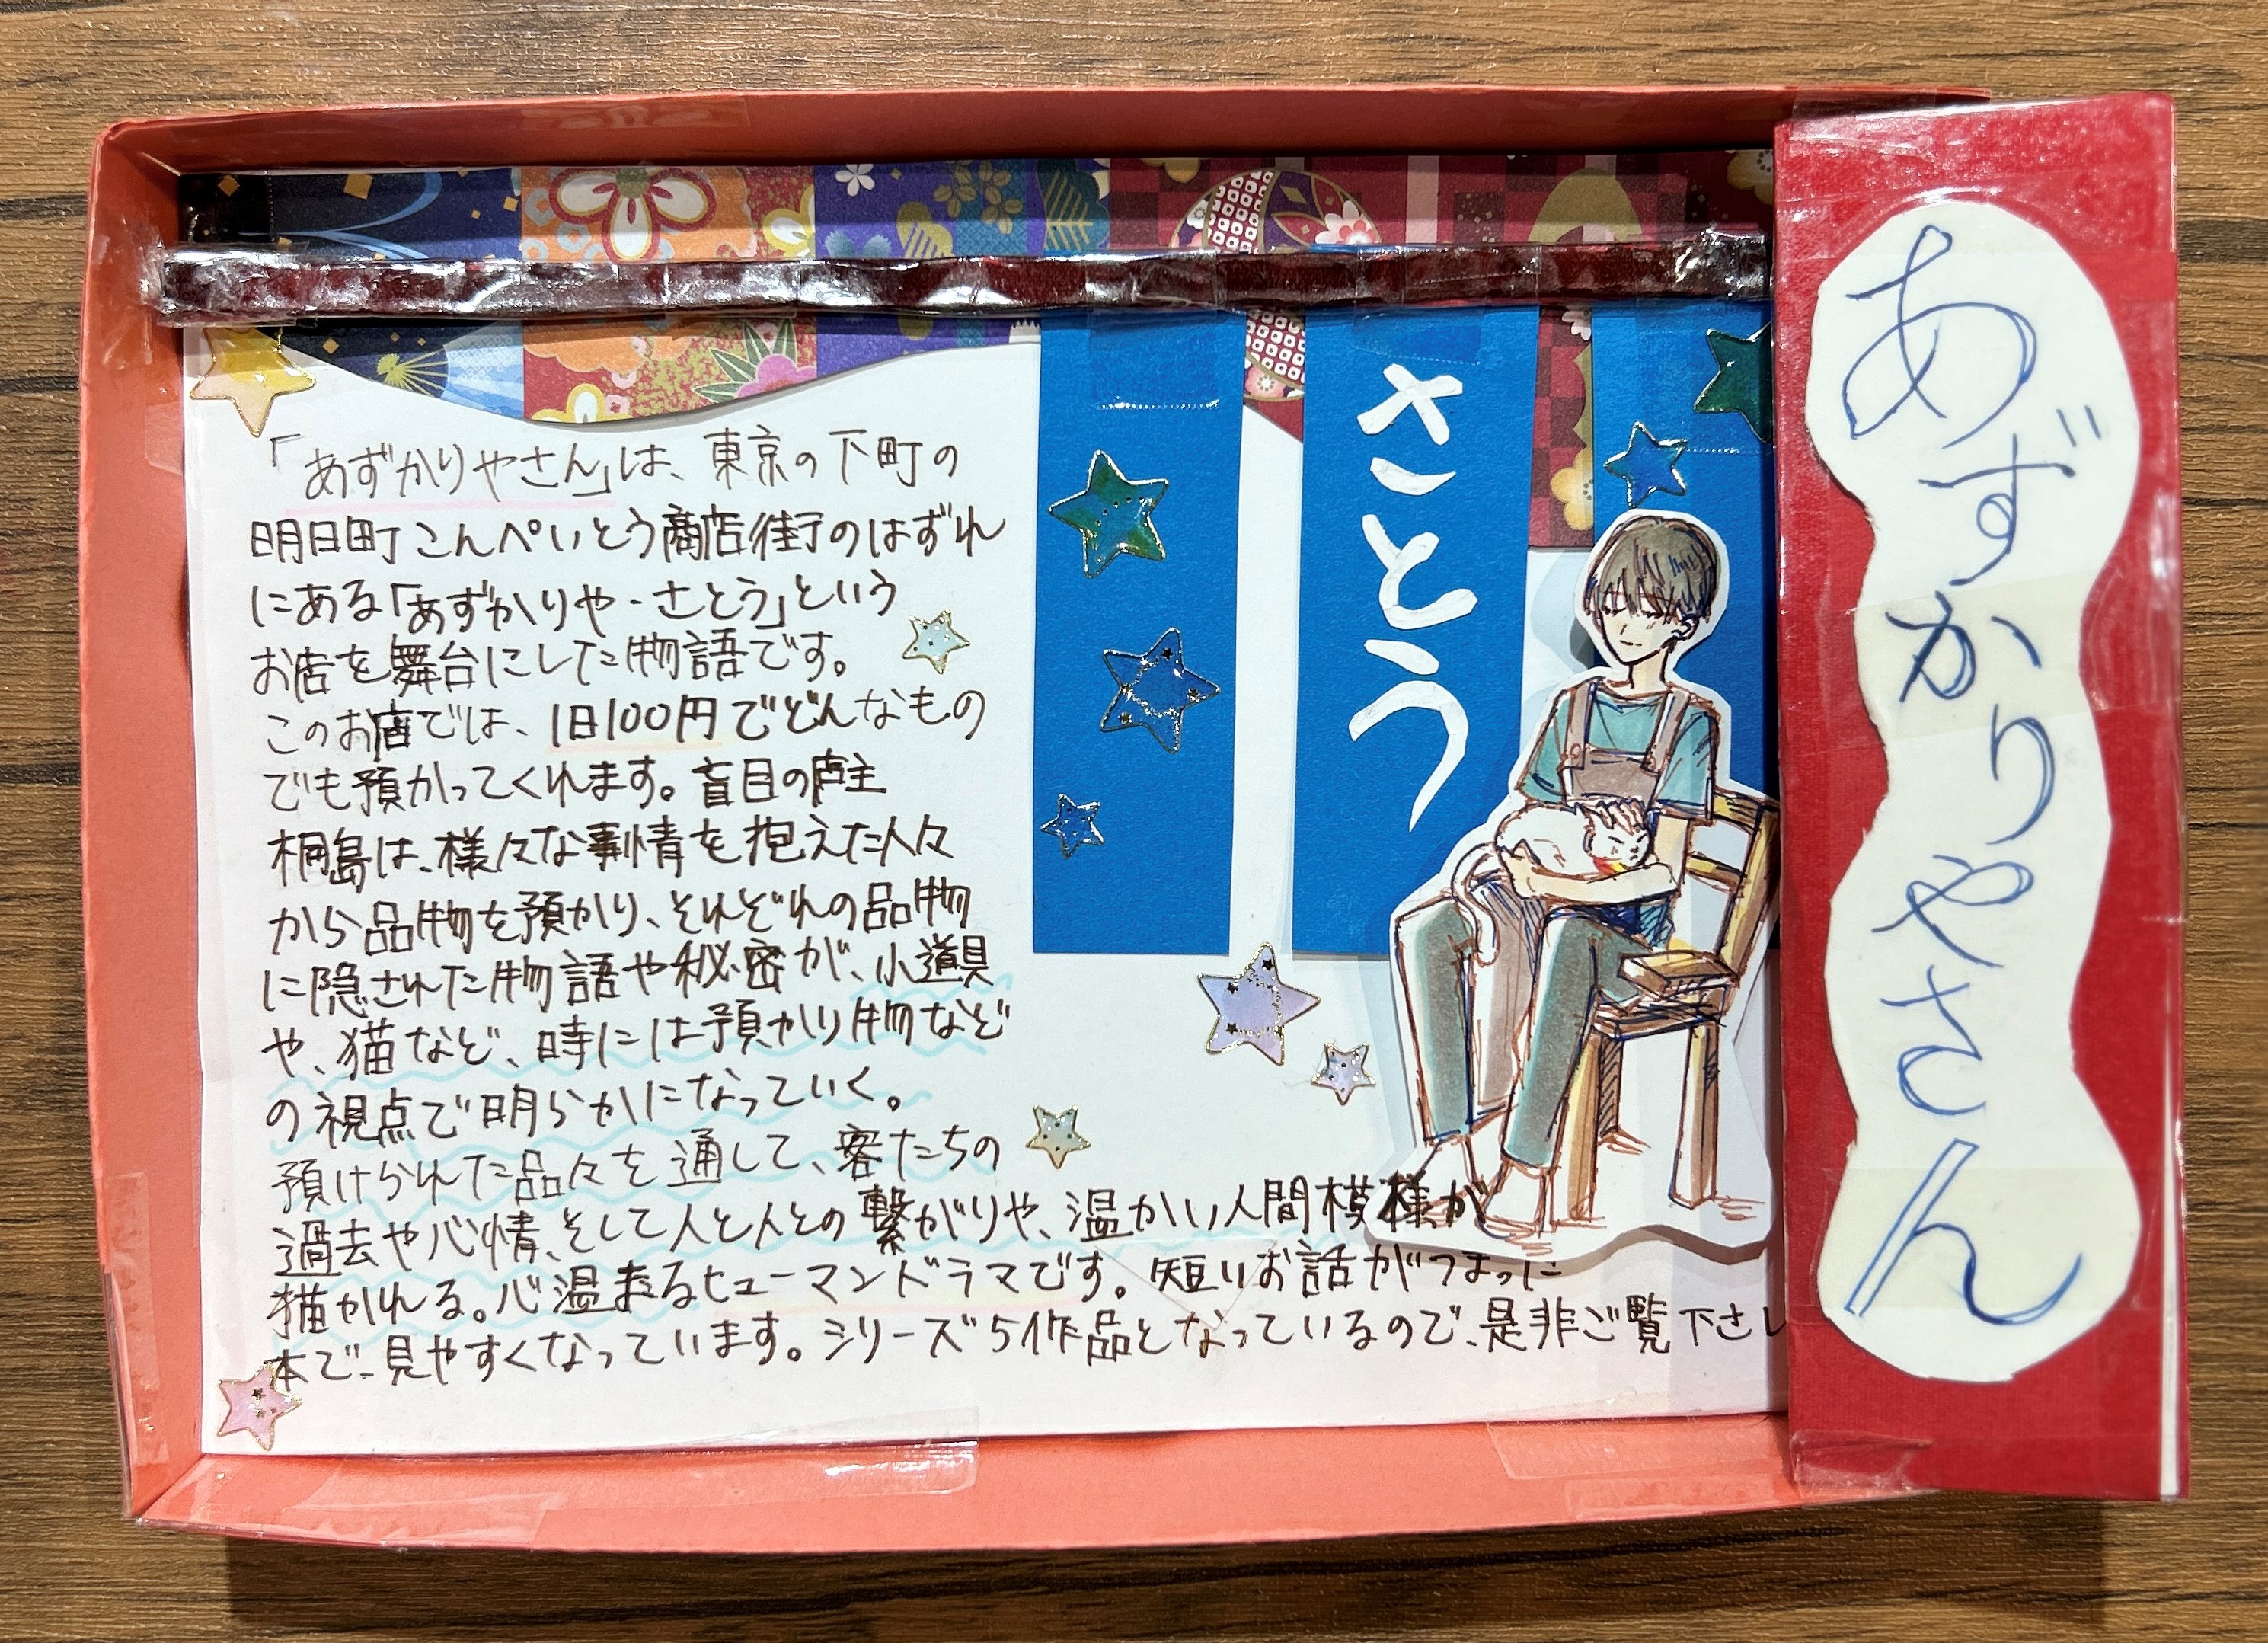 あずかりやさん
さとう
「あずかりやさん」は、東京の下町の
明日町こんぺいとう商店街のはずれ
にある「あずかりや・さとう」という
お店を舞台にした物語です。
このお店では、1日100円でどんなもの
でも預かってくれます。盲目の店主
桐島は、様々な事情を抱えた人々
から品物を預かり、それぞれの品物
に隠された物語や秘密が、小道具
や、猫など、時には預かり物など
の視点で明らかになっていく。
預けられた品々を通して、客たちの
過去や心情、そして人と人との繋がりや、温かい人間模様が
描かれる。心温まるヒューマンドラマです。短いお話がつまった
本で、見やすくなっています。シリーズ5作品となっているので、是非ご覧下さい